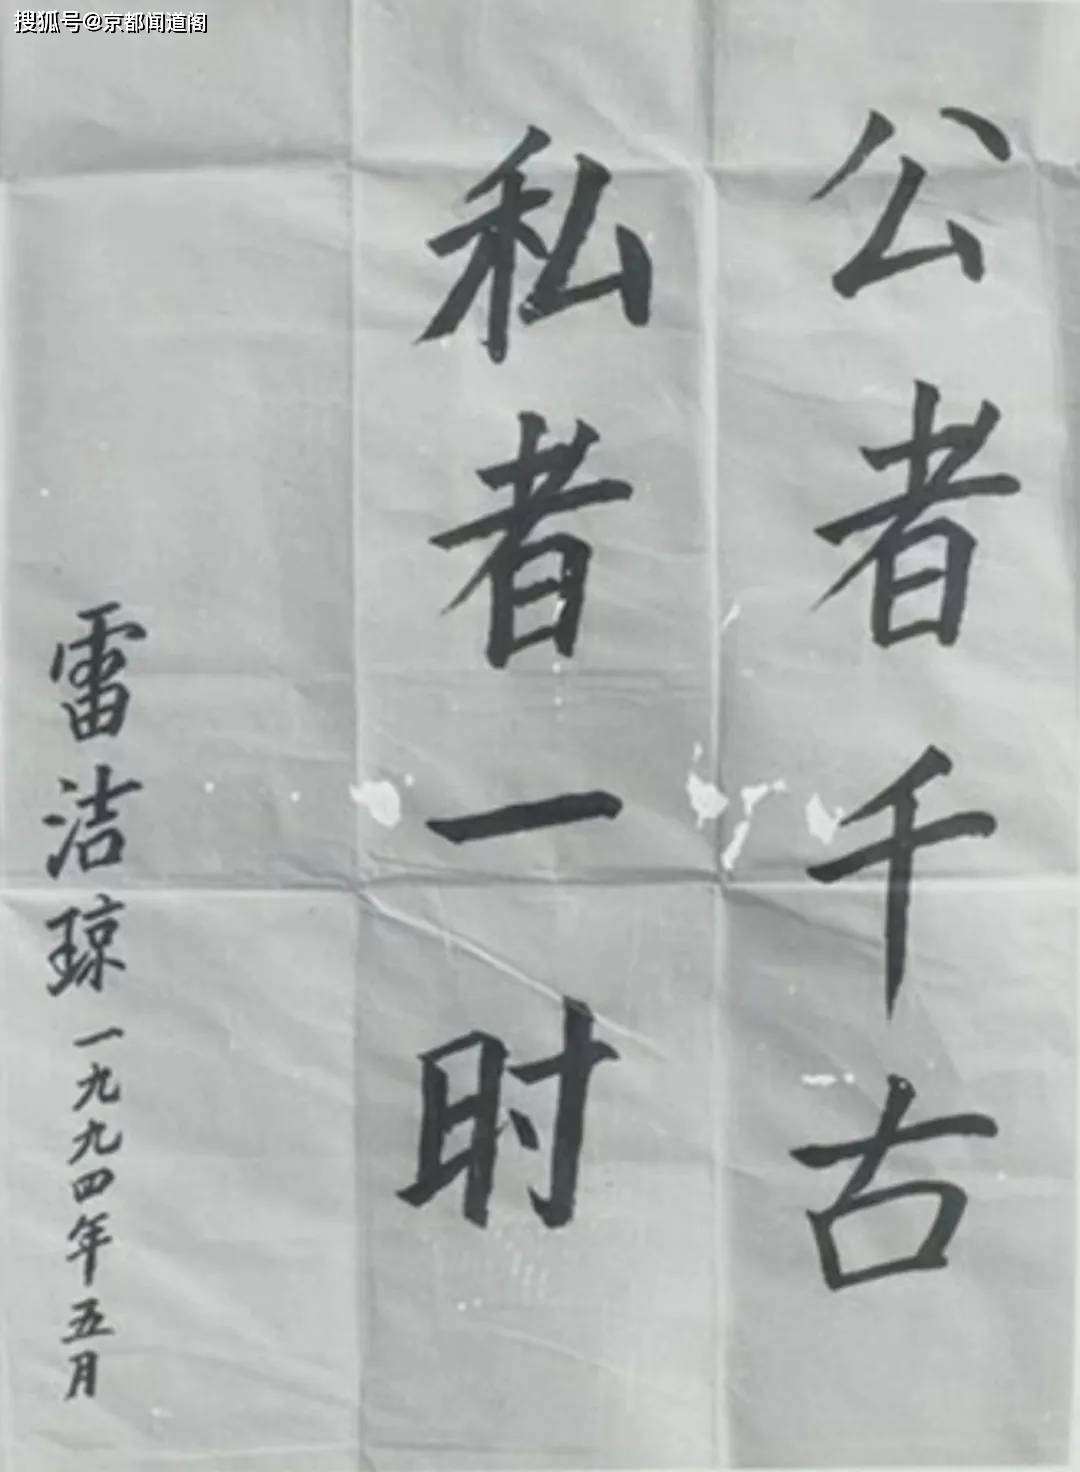 搜狐号@京都闻道阁
公者千古
私者一时
雷洁琼 一九九四年五月